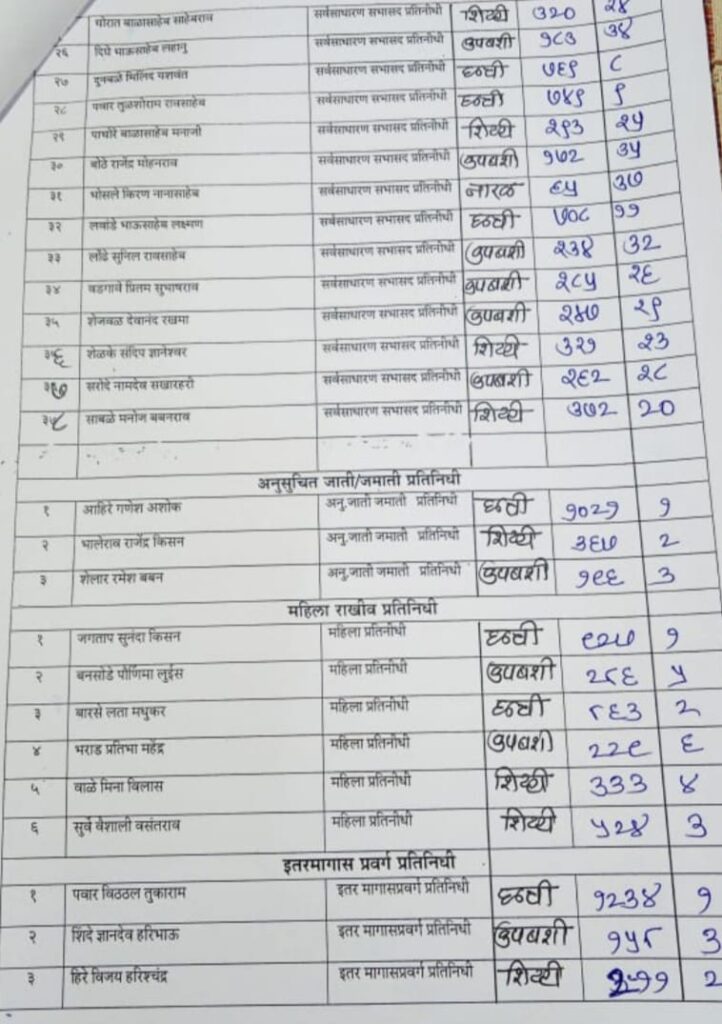 थोरात बाळासाहेब साहेबराव सर्वसाधारण सभासद प्रतिनीधी शिट्टी ३२० २४
२६ दिघे भाऊसाहेब लहानु सर्वसाधारण सभासद प्रतिनीधी कपबशी १८३ ३४
२७ दुनबळे मिलिंद यशवंत सर्वसाधारण सभासद प्रतिनीधी छत्री ७६९ ८
२८ पवार तुळशीराम रावसाहेब सर्वसाधारण सभासद प्रतिनीधी छत्री ७४९ ९
२९ पाचोरे बाळासाहेब मनाजी सर्वसाधारण सभासद प्रतिनीधी शिट्टी २९३ २५
३० बोठे राजेंद्र मोहनराव सर्वसाधारण सभासद प्रतिनीधी कपबशी १७२ ३५
३१ भोसले किरण नानासाहेब सर्वसाधारण सभासद प्रतिनीधी नारळ ६५ ३७
३२ लवांडे भाऊसाहेब लक्ष्मण सर्वसाधारण सभासद प्रतिनीधी छत्री ७०८ ११
३३ लोंढे सुनिल रावसाहेब सर्वसाधारण सभासद प्रतिनीधी कपबशी २३४ ३२
३४ वडगावे प्रितम सुभाषराव सर्वसाधारण सभासद प्रतिनीधी कपबशी २८५ २६
३५ शेजवळ देवानंद रखमा सर्वसाधारण सभासद प्रतिनीधी कपबशी २४७ २९
३६ शेळके संदिप ज्ञानेश्वर सर्वसाधारण सभासद प्रतिनीधी शिट्टी ३२१ २३
३७ सरोदे नामदेव सखारहरी सर्वसाधारण सभासद प्रतिनीधी कपबशी २६२ २८
३८ साबळे मनोज बबनराव सर्वसाधारण सभासद प्रतिनीधी शिट्टी ३७२ २०
अनुसुचित जाती/जमाती प्रतिनिधी
१ आहिरे गणेश अशोक अनु.जाती जमाती प्रतिनीधी छत्री १०२१ १
२ भालेराव राजेंद्र किसन अनु.जाती जमाती प्रतिनीधी शिट्टी ३६७ २
३ शेलार रमेश बबन अनु.जाती जमाती प्रतिनीधी कपबशी १९६ ३
महिला राखीव प्रतिनिधी
१ जगताप सुनंदा किसन महिला प्रतिनीधी छत्री ९२७ १
२ बनसोडे पौर्णिमा लुईस महिला प्रतिनीधी कपबशी २८६ ५
३ बारसे लता मधुकर महिला प्रतिनीधी छत्री ८६३ २
४ भराड प्रतिभा महेंद्र महिला प्रतिनीधी कपबशी २२९ ६
५ वाळे मिना विलास महिला प्रतिनीधी शिट्टी ३३३ ४
६ सुर्वे वैशाली वसंतराव महिला प्रतिनीधी शिट्टी ५२४ ३
इतरमागास प्रवर्ग प्रतिनिधी
१ पवार विठ्ठल तुकाराम इतर मागासप्रवर्ग प्रतिनिधी छत्री १२३४ १
२ शिंदे ज्ञानदेव हरिभाऊ इतर मागासप्रवर्ग प्रतिनिधी कपबशी १५८ ३
३ हिरे विजय हरिश्चंद्र इतर मागासप्रवर्ग प्रतिनिधी शिट्टी २११ २